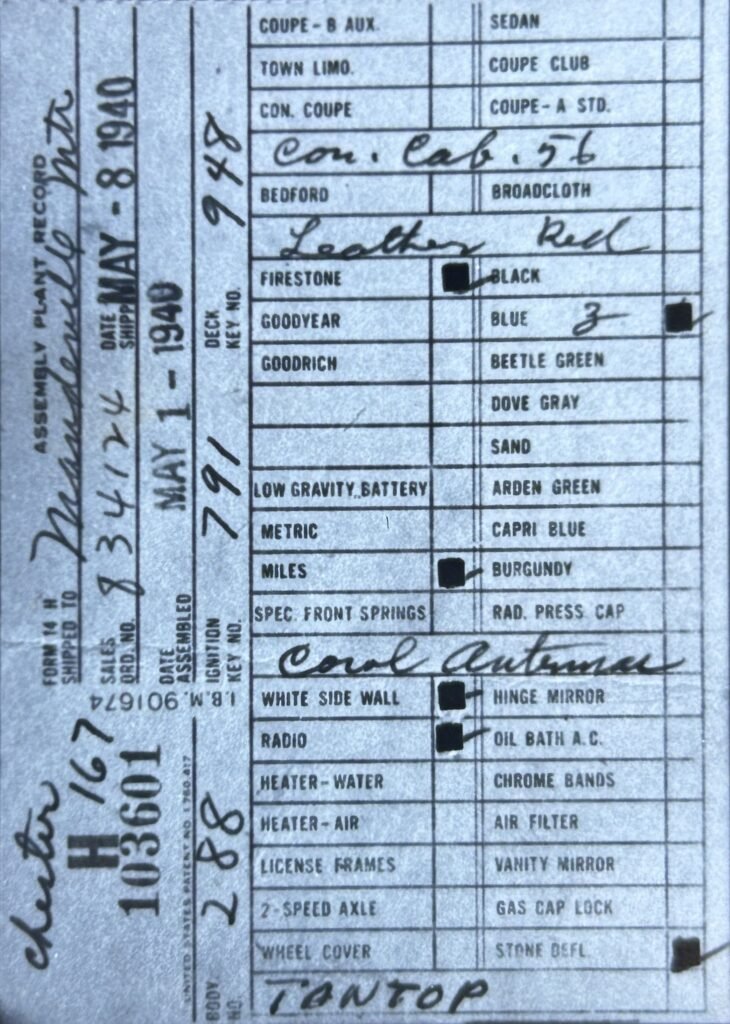 ASSEMBLY PLANT RECORD
FORM 14 H
SHIPPED TO Mandeville Mtr
SALES ORD. NO. 834124 DATE SHIPP MAY - 8 1940
DATE ASSEMBLED MAY 1 - 1940
IGNITION KEY NO. 791 DECK KEY NO. 948
I.B.M. 901674
Chester
H 167
103601
UNITED STATES PATENT NO. 1,780,417
BODY NO. 288
COUPE - B AUX. SEDAN
TOWN LIMO. COUPE CLUB
CON. COUPE COUPE - A STD.
Con. Cab. 56
BEDFORD BROADCLOTH
Leather Red
FIRESTONE BLACK
GOODYEAR BLUE 3
GOODRICH BEETLE GREEN
DOVE GRAY
SAND
LOW GRAVITY BATTERY ARDEN GREEN
METRIC CAPRI BLUE
MILES BURGUNDY
SPEC. FRONT SPRINGS RAD. PRESS CAP
Cowl Antennae
WHITE SIDE WALL HINGE MIRROR
RADIO OIL BATH A.C.
HEATER - WATER CHROME BANDS
HEATER - AIR AIR FILTER
LICENSE FRAMES VANITY MIRROR
2-SPEED AXLE GAS CAP LOCK
WHEEL COVER STONE DEFL.
TANTOP